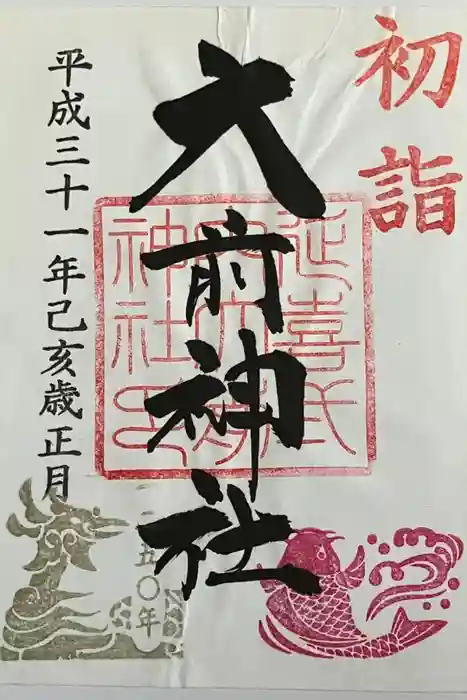 初詣
大前神社
延喜式
神社
平成三十一年己亥歳正月
五〇年